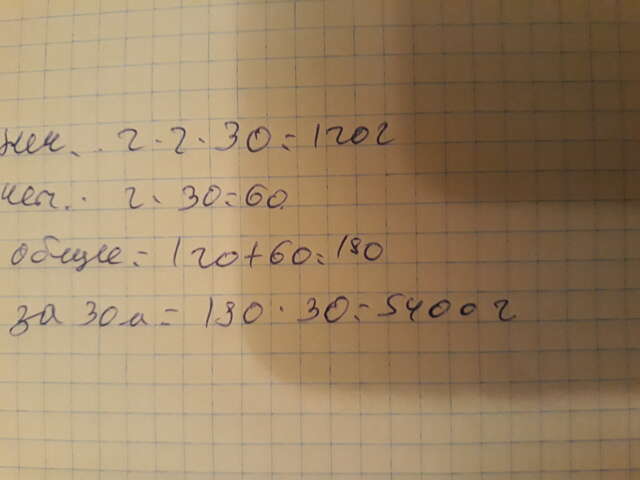 2·2·30=120г
2·30=60.
общие=120+60=180
за 30д=180·30=5400г